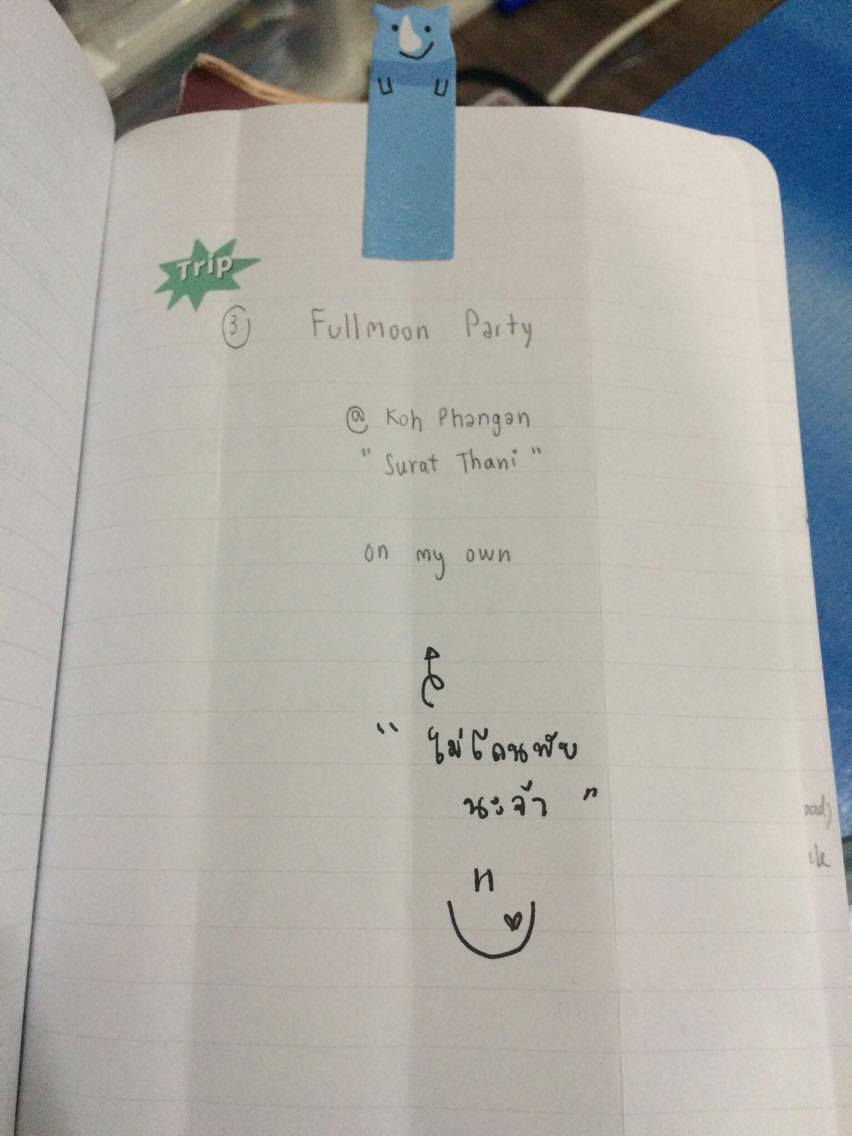 Trip
③ Fullmoon Party
@ Koh Phangan
" Surat Thani "
on my own
" ไม่โดนพับ
นะจ้า "